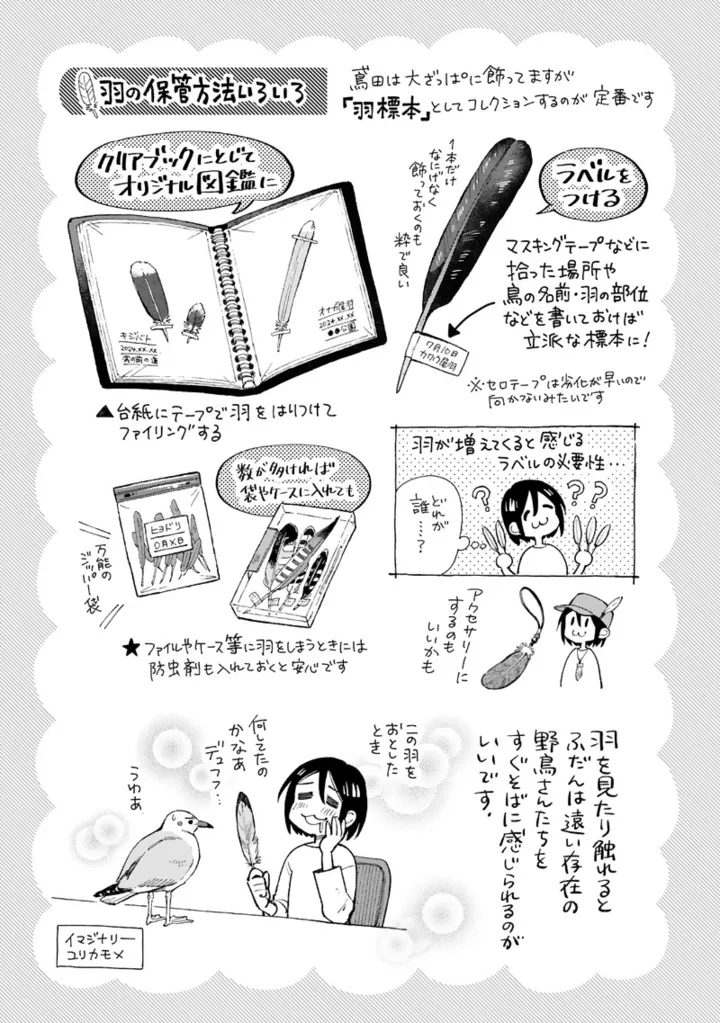 羽の保管方法いろいろ
鳶田は大ざっぱに飾ってますが
「羽標本」としてコレクションするのが定番です
クリアブックにとじて
オリジナル図鑑に
1本だけ
なにげなく
飾っておくのも
粋で良い
ラベルを
つける
マスキングテープなどに
拾った場所や
鳥の名前・羽の部位
などを書いておけば
立派な標本に!
7月10日
カワウ尾羽
※セロテープは劣化が早いので
向かないみたいです
キジバト
2024.xx.xx
家の前の道
オナガ尾羽
2024.xx.xx
●●公園
▲台紙にテープで羽をはりつけて
ファイリングする
数が多ければ
袋やケースに入れても
ヒヨドリ
○月×日
万能の
ジッパー袋
羽が増えてくると感じる
ラベルの必要性…
どれが
誰…?
? ? ? ? ?
アクセサリーに
するのも
いいかも
★ファイルやケース等に羽をしまうときには
防虫剤も入れておくと安心です
羽を見たり触れると
ふだんは遠い存在の
野鳥さんたちを
すぐそばに感じられるのが
いいです。
この羽を
おとした
とき
何してたの
かなあ
デュフフ…
うわあ
イマジナリー
ユリカモメ